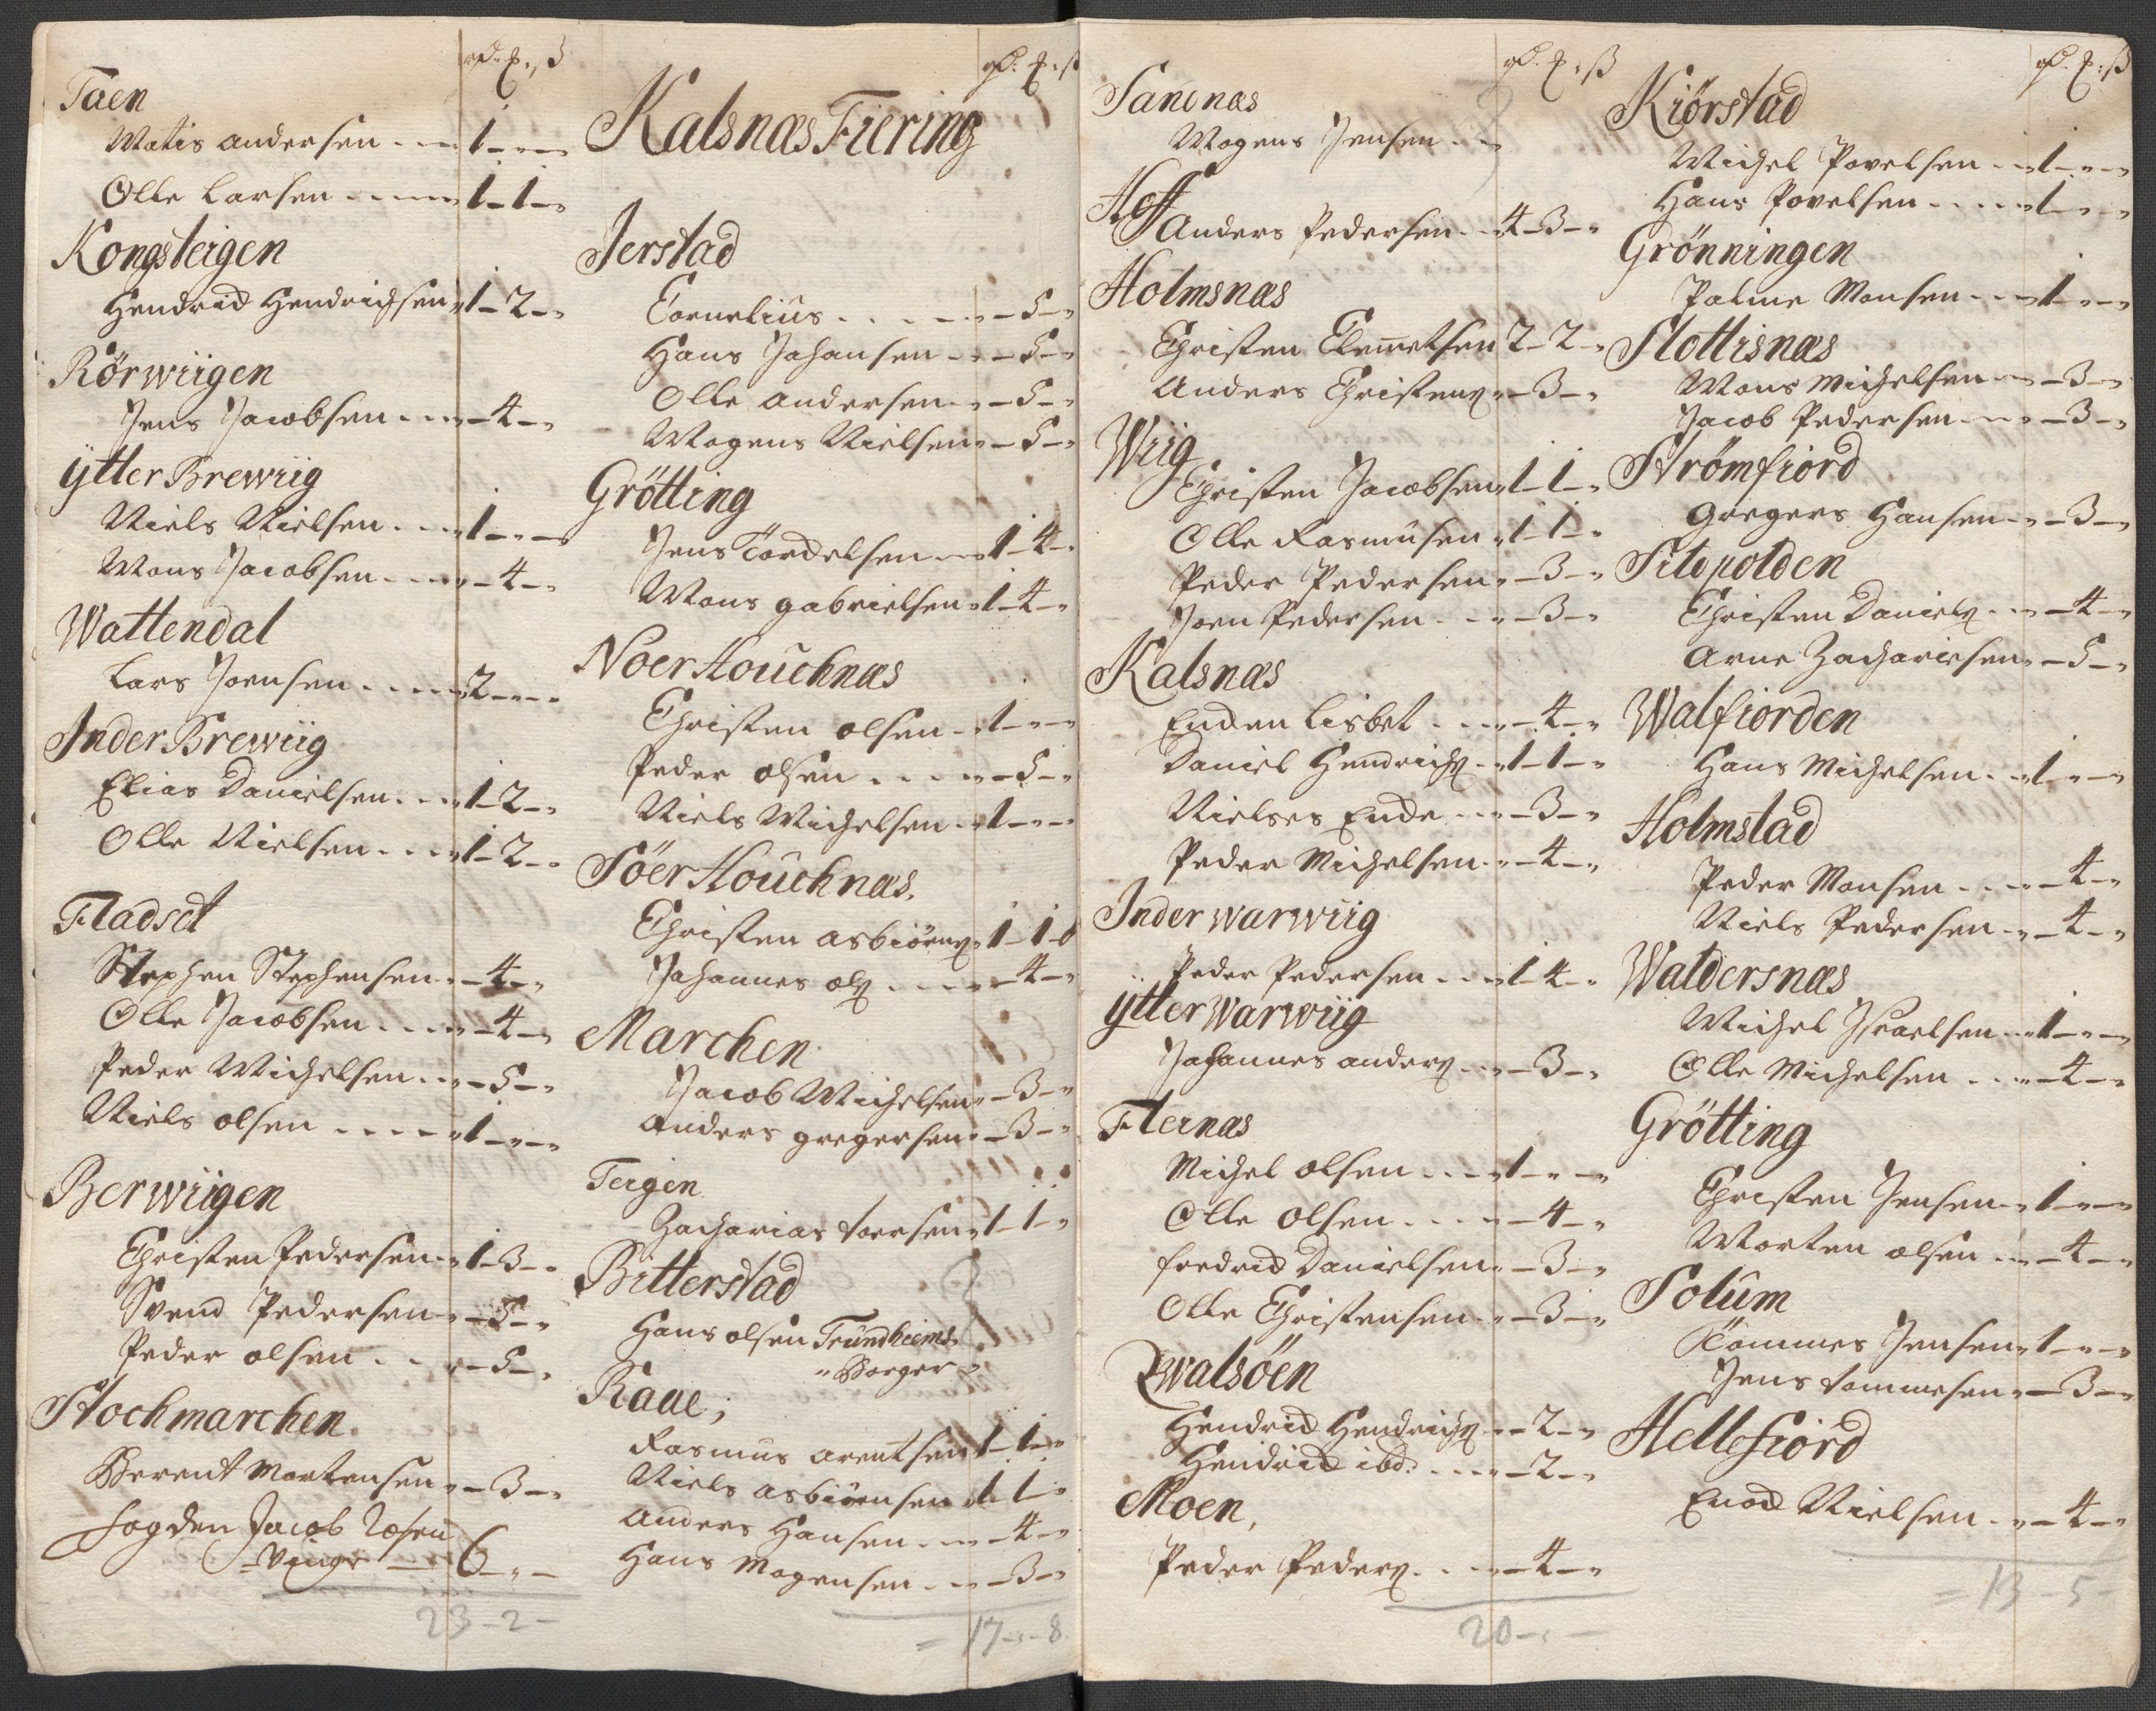 rd. ꝑ. ß
Taen
Matis andersen - - - 1 - " - "
Olle Larsen - - - - 1 - 1 - "
Kongsteigen
Hendrich Hendrichsen " 1 - 2 - "
Rörwiigen
Jens Jacobsen - - - " - 4 - "
Ytter Brewiig
Niels Nielsen - - - 1 - " - "
Mons Jacobsen - - - " - 4 - "
Wattendal
Lars Joensen - - - - 2 - " - "
Inder Brewiig
Elias Danielsen - - - 1 - 2 - "
Olle Nielsen - - - 1 - 2 - "
Fladset
Stephen Stephensen - " - 4 - "
Olle Jacobsen - - - " - 4 - "
Peder Michelsen - - " - 5 - "
Niels olsen - - - - 1 - " - "
Berwiigen
Christen Pedersen - 1 - 3 - "
Svend Pedersen - " - 5 - "
Peder olsen - - - " - 5 - "
Stochmarchen
Berent Mortensen - " - 3 - "
fogden Jacob
6 - " -
23 - 2 -
rd. ꝑ. ß
Kalsnæs Fiering
Jerstad
Cornelius - - - - " - 5 - "
Hans Johansen - - " - 5 - "
Olle andersen - - " - 5 - "
Mogens Nielsen - " - 5 - "
Grötting
Jens Tordelsen - - 1 - 4 - "
Mons gabrielsen - 1 - 4 - "
Noer Houchnæs
Christen olsen - - 1 - " - "
Peder olsen - - - - " - 5 - "
Niels Michelsen - - 1 - " - "
Söer Houchnæs.
Christen asbiörnß - 1 - 1 - 8
Johannes olß - - - " - 4 - "
Marchen
Jacob Michelsen - " - 3 - "
Anders gregersen - " - 3 - "
Teigen
Zacharias toersen - 1 - 1 - "
Bitterstad
Hans olsen Trundheims
" Borger "
Raae;
Rasmus arentsen 1 - 1 - "
Niels asbiörnsen 1 - 1 - "
Anders Hansen - - " - 4 - "
Hans Mogensen - - " - 3 - "
= 17 - " - 8.
rd. ꝑ. ß
Sandnæs
Mogens Jensen - -
Hoff
Anders Pedersen - - 4 - 3 - "
Holmsnæs
Christen Clemmetsen 2 - 2 - "
Anders Christenß - " - 3 - "
Wiig
Christen Jacobsen 1 - 1 - "
Olle Rasmusen - 1 - 1 - "
Peder Pedersen - " - 3 - "
Joen Pedersen - - " - 3 - "
Kalsnæs
Enden Lisbet - - - " - 4 - "
Daniel Hendrichß - 1 - 1 - "
Nielses Ende - - " - 3 - "
Peder Michelsen - " - 4 - "
Inder warwiig
Peder Pedersen - - 1 - 4 - "
Ytter Warwiig
Johannes anderß - - " - 3 - "
Flernæs
Michel olsen - - - 1 - " - "
Olle olsen - - - " - 4 - "
fredrich Danielsen - " - 3 - "
Olle Christensen - " - 3 - "
Qwalsöen
Hendrich Hendrichß - " - 2 - "
Hendrich ibd: - - - " - 2 - "
Moen,
Peder Pederß - - - " - 4 - "
20 - " -
rd. ꝑ. ß
Kiörstad
Michel Povelsen - - 1 - " - "
Hans Povelsen - - - 1 - " - "
Grönningen
Palme Monsen - - - 1 - " - "
Slottisnæs
Mons Michelsen - - " - 3 - "
Jacob Pedersen - - " - 3 - "
Strömfiord
Gregers Hansen - - " - 3 - "
Sildpolden
Christen Danielß - - " - 4 - "
Arne Zachariesen - " - 5 - "
Walfiorden
Hans Michelsen - - 1 - " - "
Holmstad
Peder Monsen - - - " - 4 - "
Niels Pedersen - - " - 4 - "
Waldersnæs
Michel Israelsen - - 1 - " - "
Olle Michelsen - - " - 4 - "
Grötting
Christen Jensen - 1 - " - "
Morten olsen - - " - 4 - "
Solum
Tommes Jensen - 1 - " - "
Jens tommesen - " - 3 - "
Hellefiord
Enod Nielsen - - " - 4 - "
= 13 - 5 -